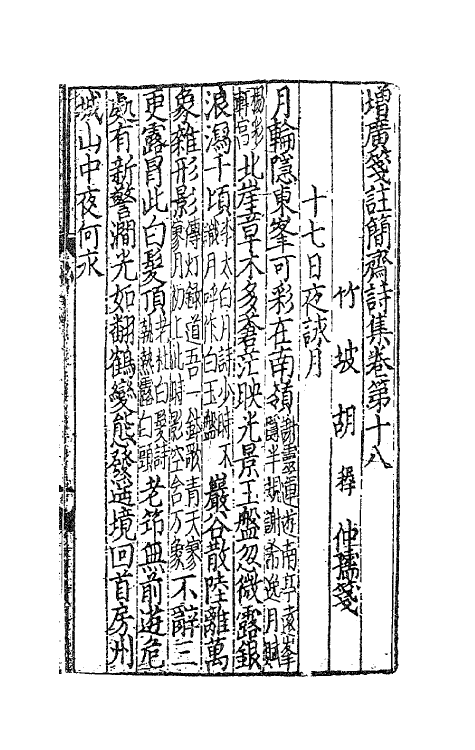 增廣箋註簡齋詩集卷第十八
竹坡胡穉仲孺箋
十七日夜詠月
月輪隱東峯可彩在南嶺謝靈運遊南亭遠峯隱半規謝希逸月賦
楊彩軒宮北崖草木多蒼茫映光景玉盤忽微露銀
浪瀉千頃李太白月詩少時不識月呼作白玉盤巖谷散陸離萬
象雜形影傳灯録道吾一鉢歌青天寥寥月初上此時影空含万象不辭三
更露冒此白髮頂老杜白髮詩執熱露白頭老筇無前遊危
處有新警澗光如翻鶴變態發遥境回首房州
城山中夜何永